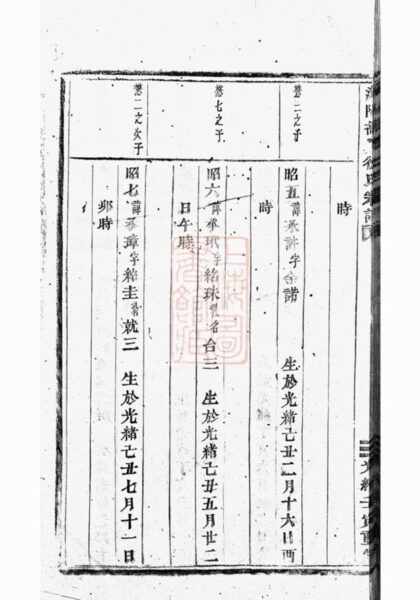 時
二之子
昭五諱承字 生於光緒己丑二月十六日酉
時
七之子
昭六諱承字紹珠乳名台三 生於光緒己丑五月廿二
日午時
二之次子
昭七諱承璋字紹圭就三 生於光緒己丑七月十一日
卯時